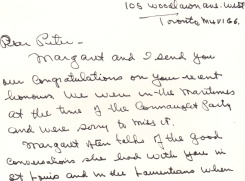 105 Woodlawn Ave. West
Toronto M4V 1G6.
Dear Peter -
Margaret and I send you
our congratulations on your recent
honours. We were in the Maritimes
at the time of the Connaught Party
and were sorry to miss it.
Margaret often talks of the good
conversations she had with you in
St Louis and in the Laurentians when